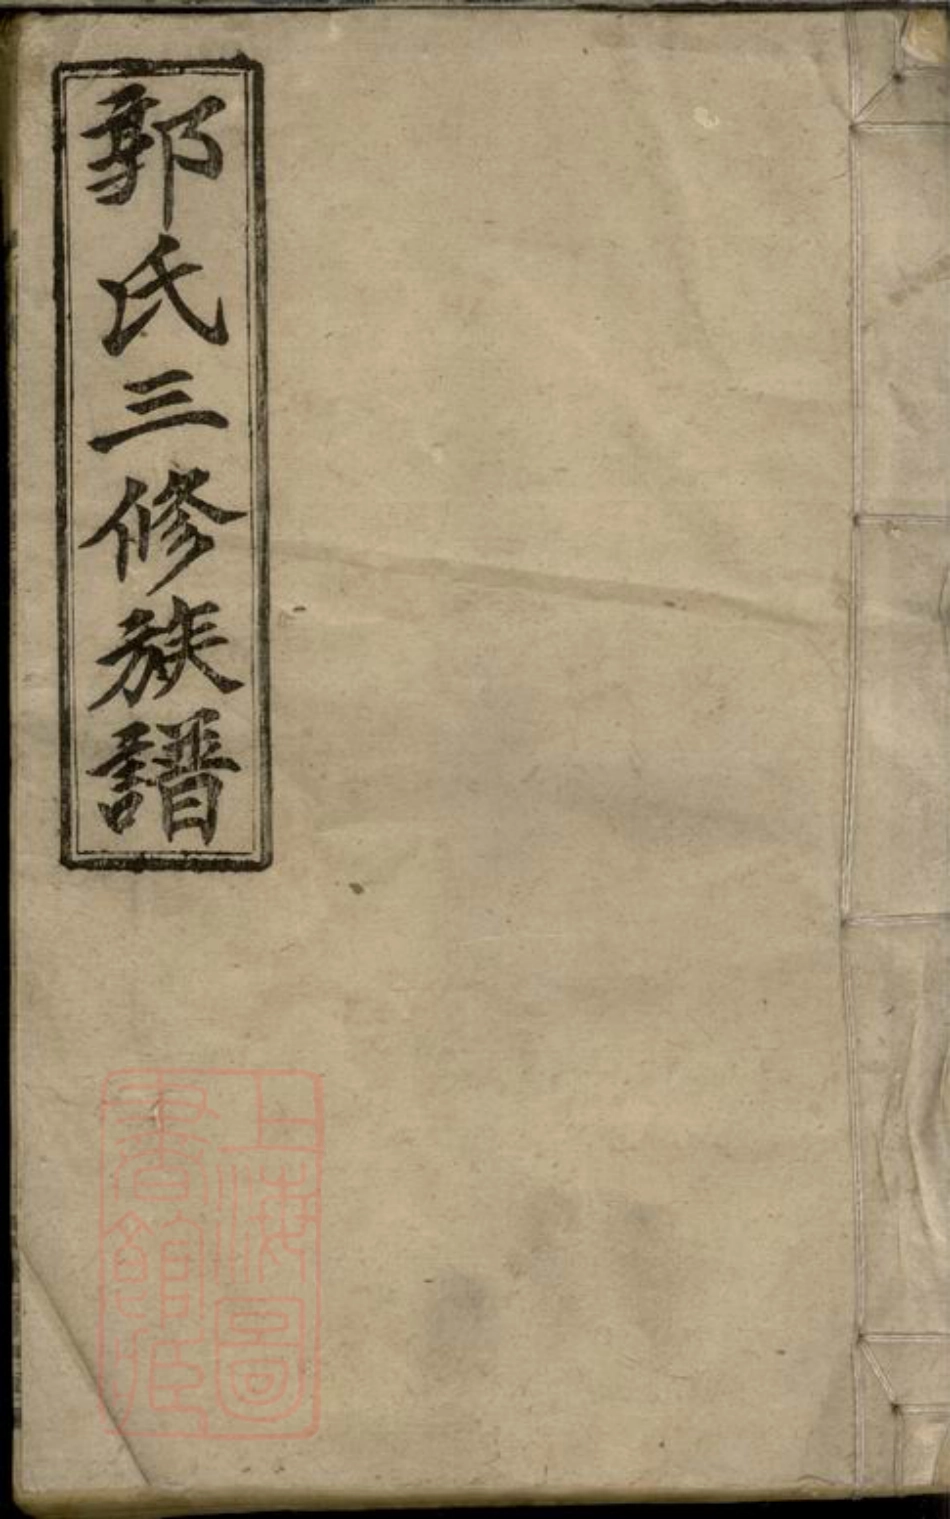 郭氏三修族譜
上海圖
書館藏